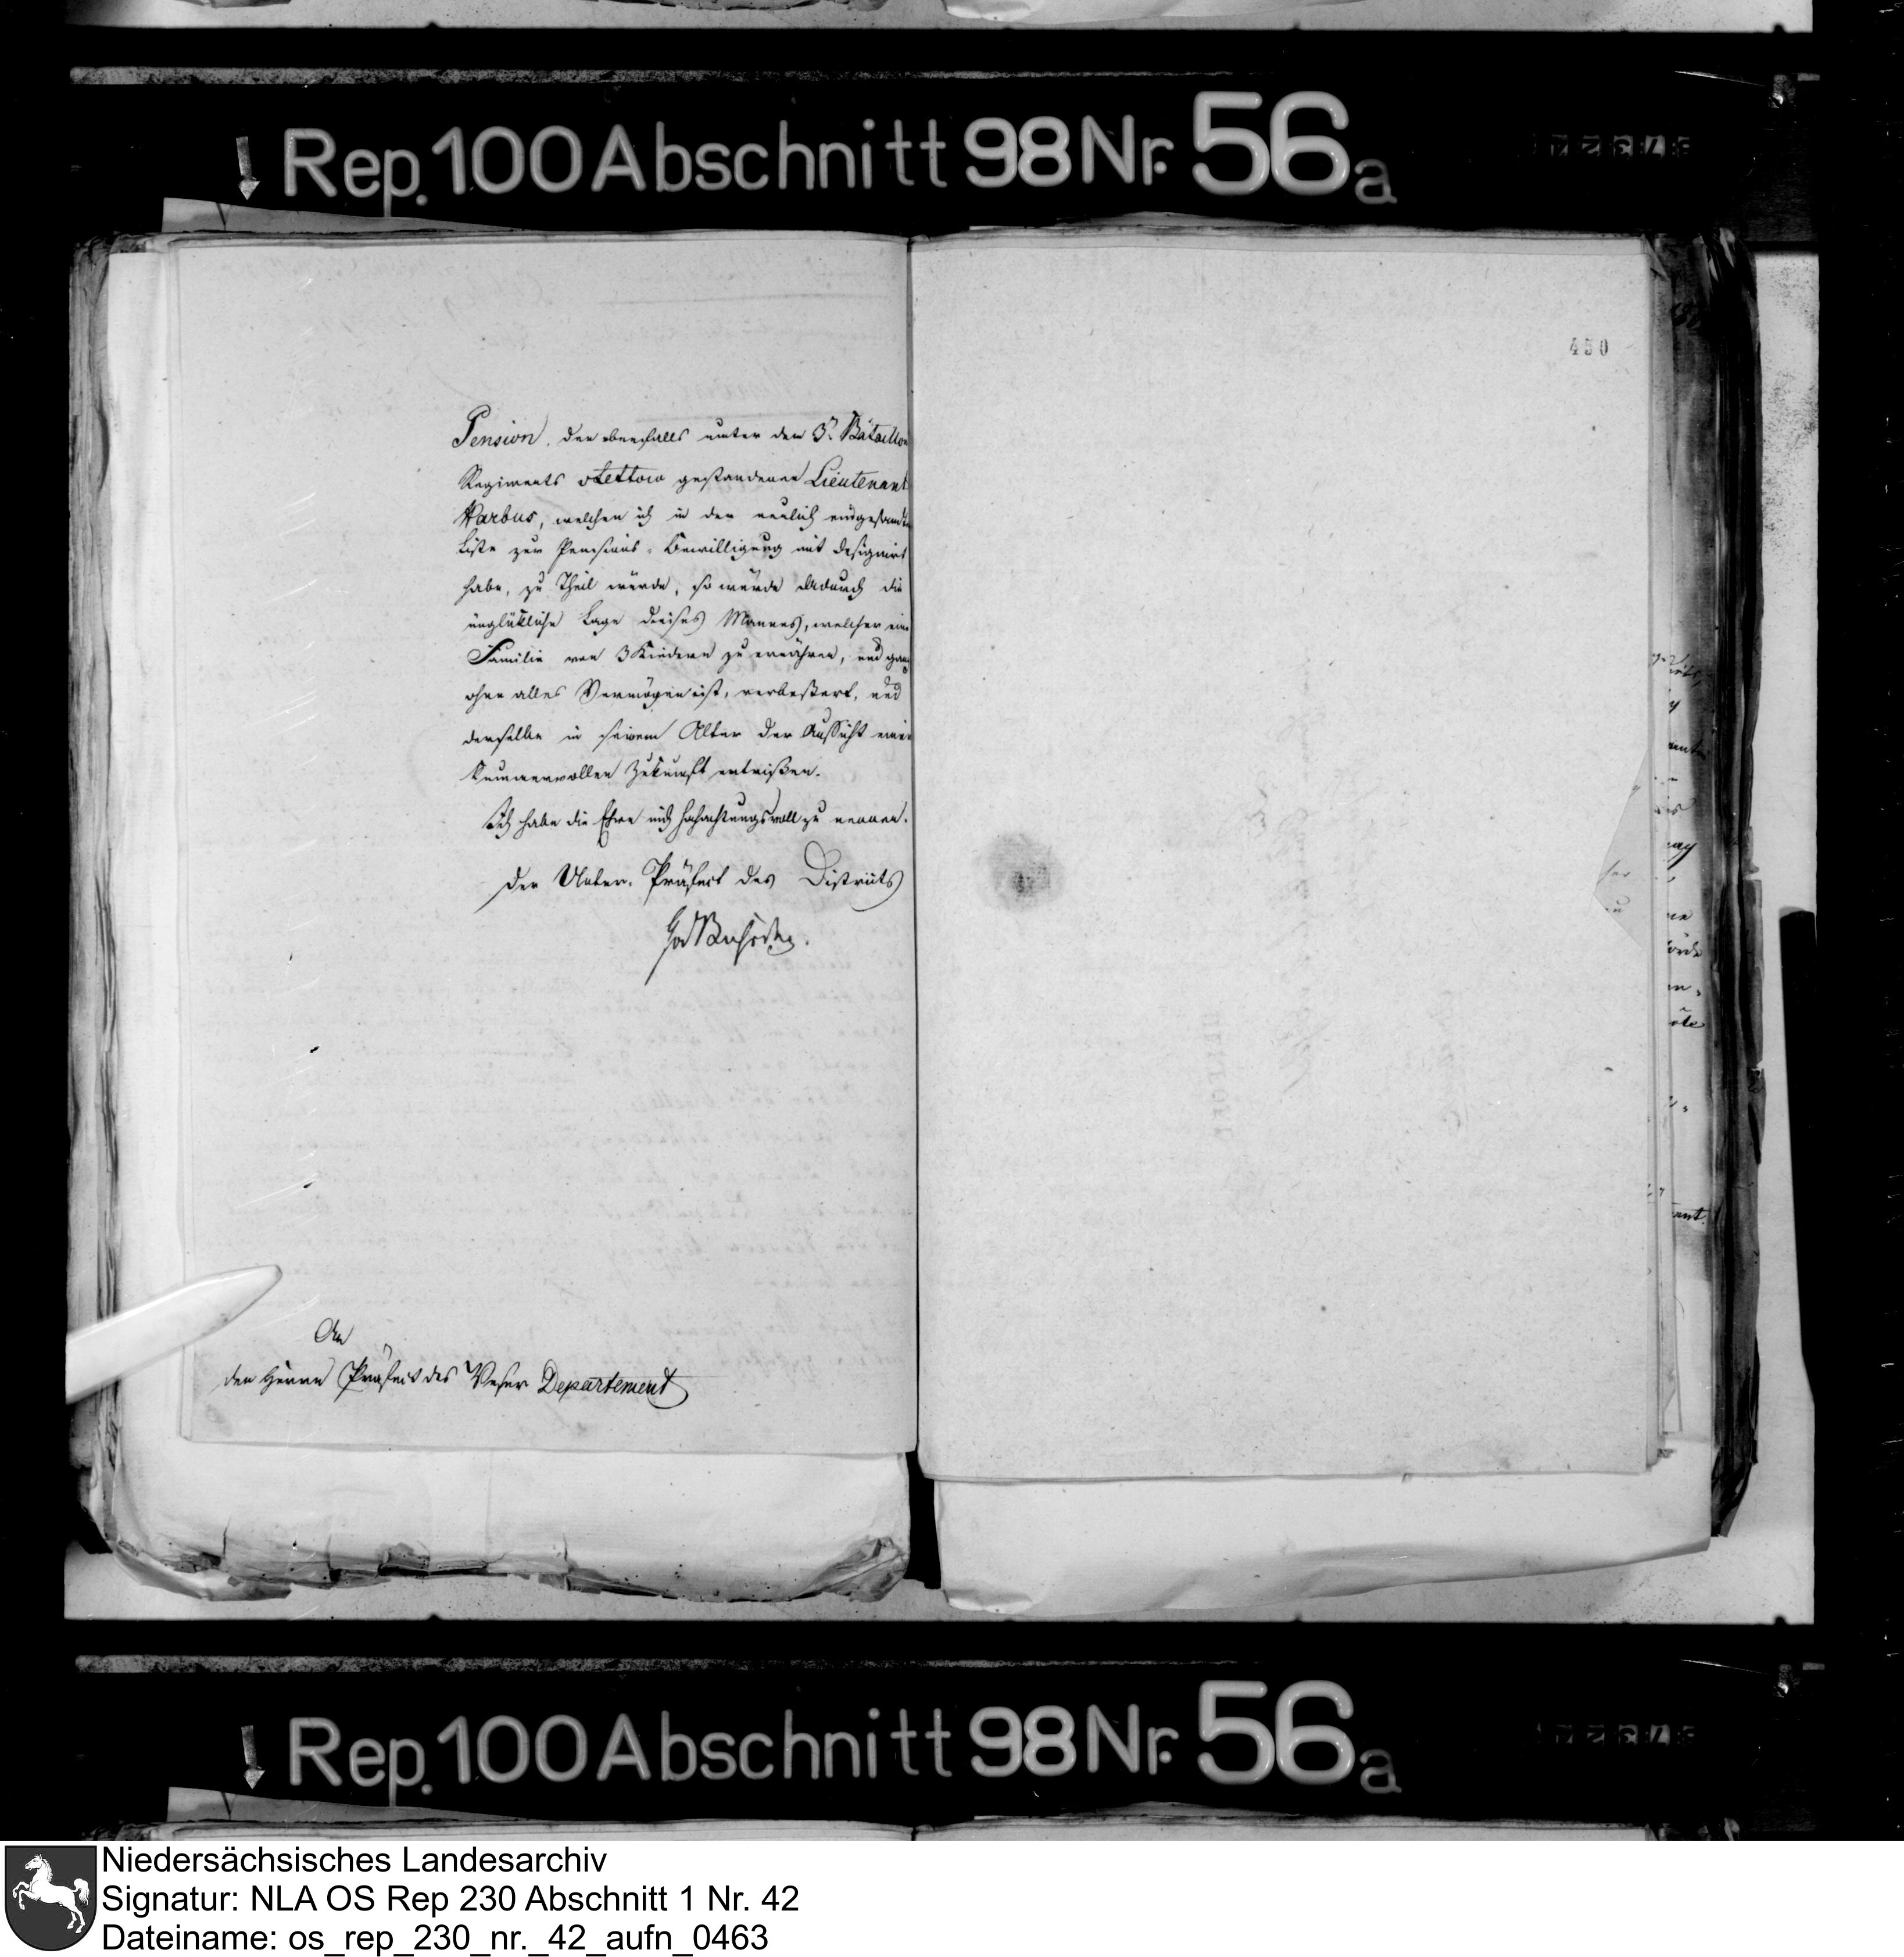 Rep. 100 Abschnitt 98 Nr. 56a
450
Pension, der ebenfalls unter dem 3n Bataillon
Regiments v Lettow gestandene Lieutenant
Warbus, welchen ich in der neulich eingesandten
Liste zur Pensions-Bewilligung mit designirt
habe, zu Theil würde, so würde dadurch die
unglükliche Lage dieses Mannes, welcher eine
Familie von 3 Kindern zu ernähren, und ganz
ohne alles Vermögen ist, verbeßert, und
derselbe in seinem Alter der Aussicht einer
kummervollen Zukunft entrißen.
Ich habe die Ehre mich hochachtungsvoll zu nennen.
Der Unter-Präfect des Districts
An
den Herrn Präfect des Weser Departement
Rep. 100 Abschnitt 98 Nr. 56a
Niedersächsisches Landesarchiv
Signatur: NLA OS Rep 230 Abschnitt 1 Nr. 42
Dateiname: os_rep_230_nr._42_aufn_0463